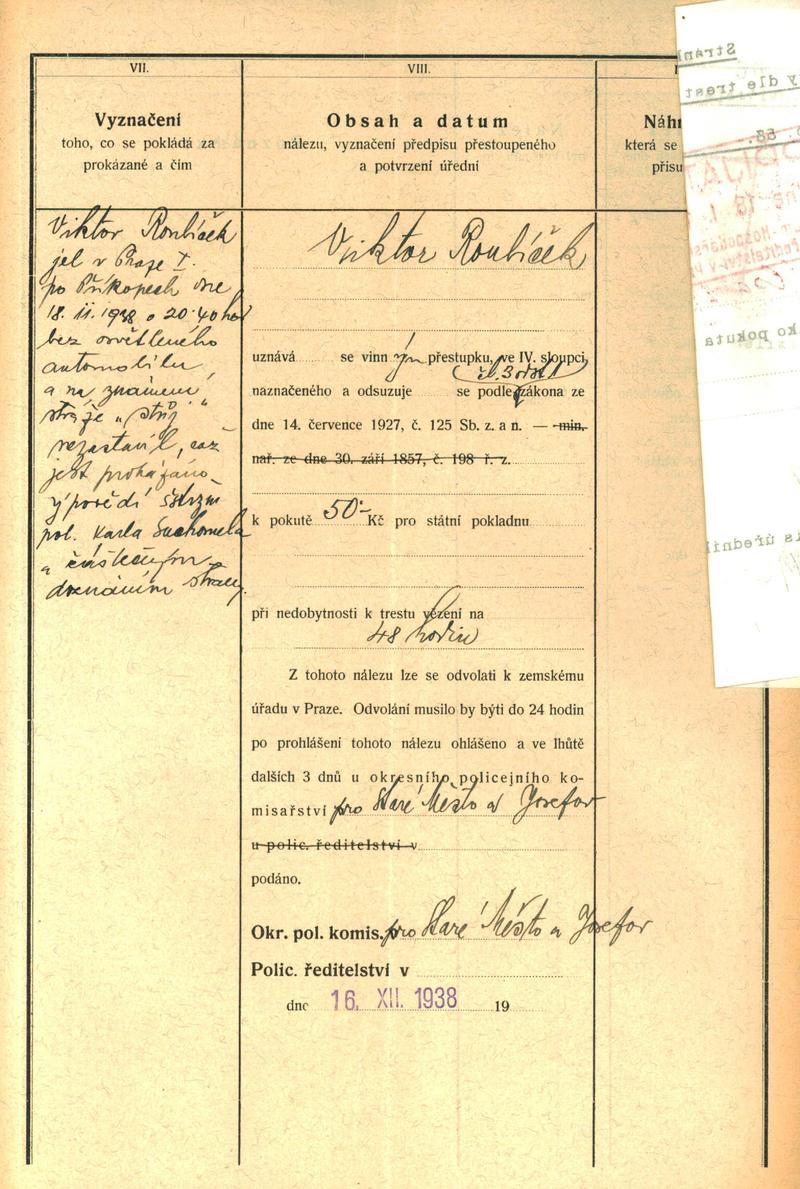 VII.
Vyznačení
toho, co se pokládá za
prokázané a čím
Viktor Roubíček
jel v Praze I.
po Příkopech dne
18. 11. 1938 o 20·40 hod
bez osvětleného
automobilu
a na znamení
stráže „stůj"
nezastavil, což
jest prokázáno
výpovědí
pol. Karla Suchomela
a částečným
doznáním strany.
VIII.
Obsah a datum
nálezu, vyznačení předpisu přestoupeného
a potvrzení úřední
Viktor Roubíček
uznává se vinným přestupku, ve IV. sloupci
čl. 3 odst 1
naznačeného a odsuzuje se podle zákona ze
dne 14. července 1927, č. 125 Sb. z. a n. — min.
nař. ze dne 30. září 1857, č. 198 ř. z.
k pokutě 50·- Kč pro státní pokladnu
při nedobytnosti k trestu vězení na
48 hodin
Z tohoto nálezu lze se odvolati k zemskému
úřadu v Praze. Odvolání musilo by býti do 24 hodin
po prohlášení tohoto nálezu ohlášeno a ve lhůtě
dalších 3 dnů u okresního policejního ko-
misařství pro Staré Město a Josefov
u polic. ředitelství v
podáno.
Okr. pol. komis. pro Staré Město a Josefov
Polic. ředitelství v
dne 16. XII. 1938 19
Náh
která se
přisu
Stránk
y dle trest
ko pokuta
is úředník